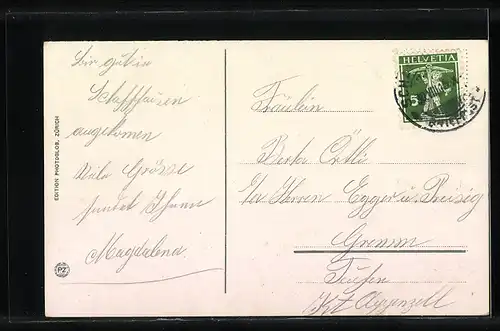 Sir gut in
Schaffhausen
angekomen
Viele Grüsse
sendet Ihnen
Magdalena
EDITION PHOTOGLOB, ZÜRICH
PZ
HELVETIA
5
Fräulein
Berta Örtli
Herren Egger u. Preisig
Gremm
Teufen
Kt. Appenzell